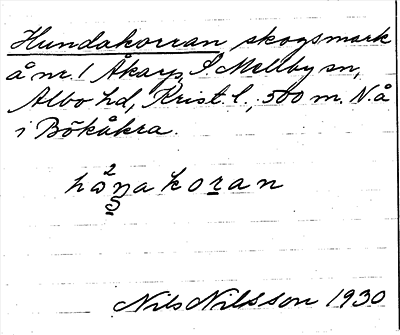 Hundakorran skogsmark
å nr. 1 Åkarp, S. Mellby sn,
Albo hd, Krist. l., 500 m. N. å
i Bökåkra.
koran
Nils Nilsson 1930